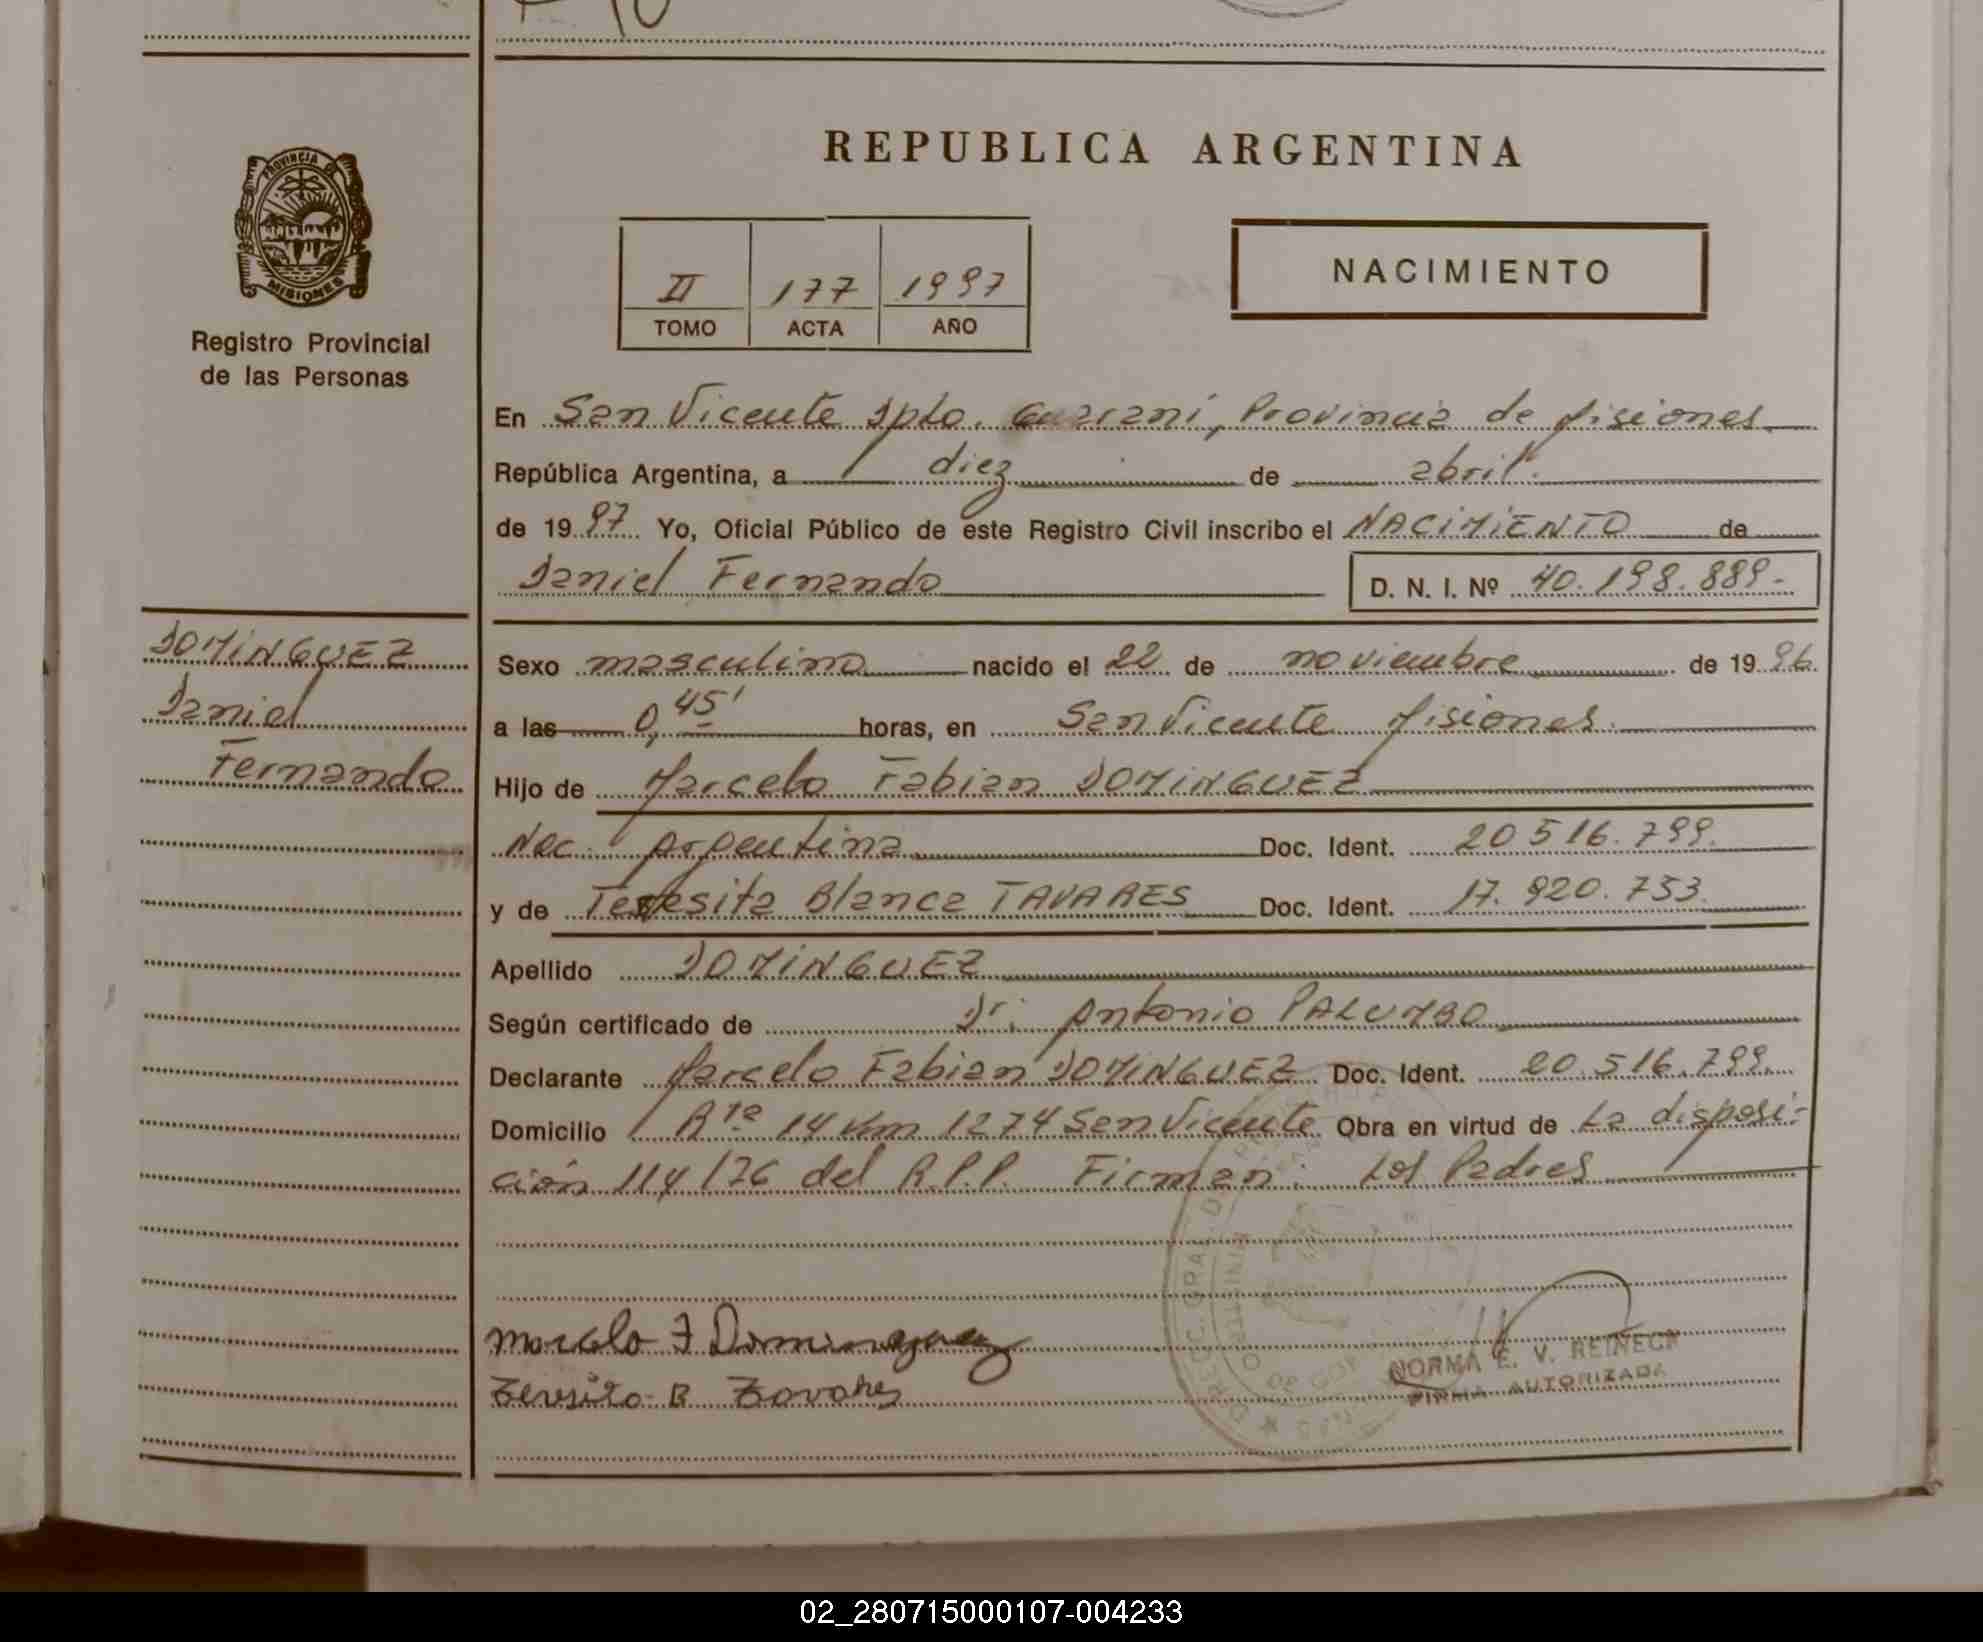 REPUBLICA ARGENTINA
PROVINCIA DE
MISIONES
Registro Provincial
de las Personas
II 177 1997
TOMO ACTA AÑO
NACIMIENTO
En San Vicente Dpto. Guaraní, Provincia de Misiones
República Argentina, a diez de abril
de 1997 Yo, Oficial Público de este Registro Civil inscribo el NACIMIENTO de
Daniel Fernando D. N. I. Nº 40.198.889.-
DOMINGUEZ
Daniel
Fernando
Sexo masculino nacido el 22 de noviembre de 1996.
a las 0,45' horas, en San Vicente Misiones.
Hijo de Marcelo Fabian DOMINGUEZ
Nac. Argentina Doc. Ident. 20 516.799.
y de Teresita Blanca TAVARES Doc. Ident. 17.920.753.
Apellido DOMINGUEZ
Según certificado de Dr. Antonio PALUMBO
Declarante Marcelo Fabian DOMINGUEZ Doc. Ident. 20.516.799.
Domicilio Rta 14 Km 1274 San Vicente Obra en virtud de La disposi-
ción 114/76 del R.P.P. Firman: Los Padres
Marcelo F Dominguez
Teresita B Tavares
NORMA E. V. REINECK
FIRMA AUTORIZADA
02_280715000107-004233